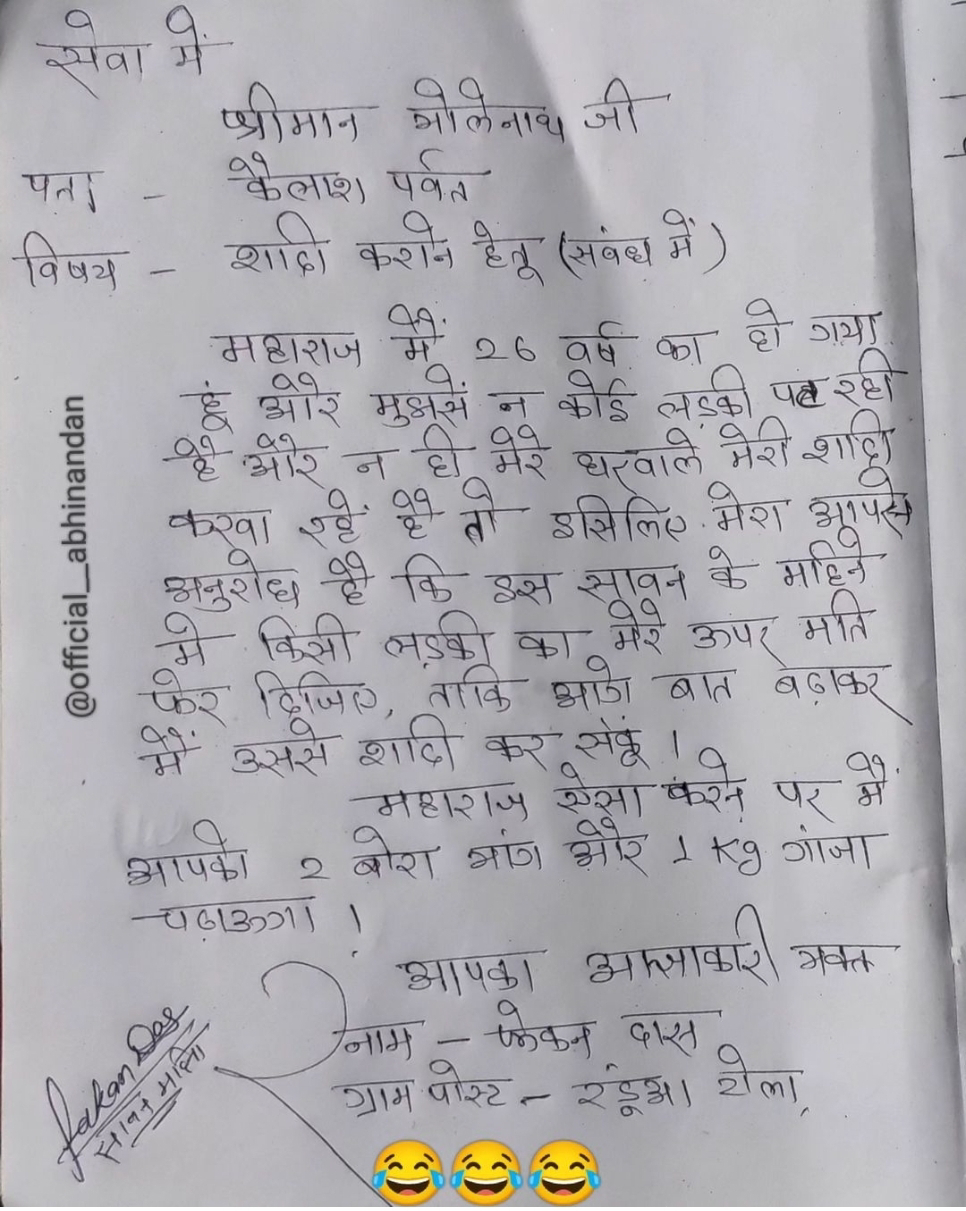 सेवा में
श्रीमान भोलेनाथ जी
पता - कैलाश पर्वत
विषय - शादी कराने हेतू (संबंध में)
महाराज मैं 26 वर्ष का हो गया
हूं और मुझसे न कोई लड़की पट रही
है और न ही मेरे घरवाले मेरी शादी
करवा रहें है तो इसिलिए मेरा आपसे
अनुरोध है कि इस सावन के महिने
मे किसी लड़की का मेरे ऊपर मति
फेर दिजिए, ताकि आगे बात बढ़ाकर
मैं उससे शादी कर संकू ।
महाराज ऐसा करने पर मैं
आपको 2 बोरा भांग और 1 Kg गांजा
चढ़ाऊगा ।
आपका आज्ञाकारी भक्त
नाम - फेकन दास
ग्राम पोस्ट - रंडूआ टोला,
Fakan Das
@official_abhinandan
😂😂😂